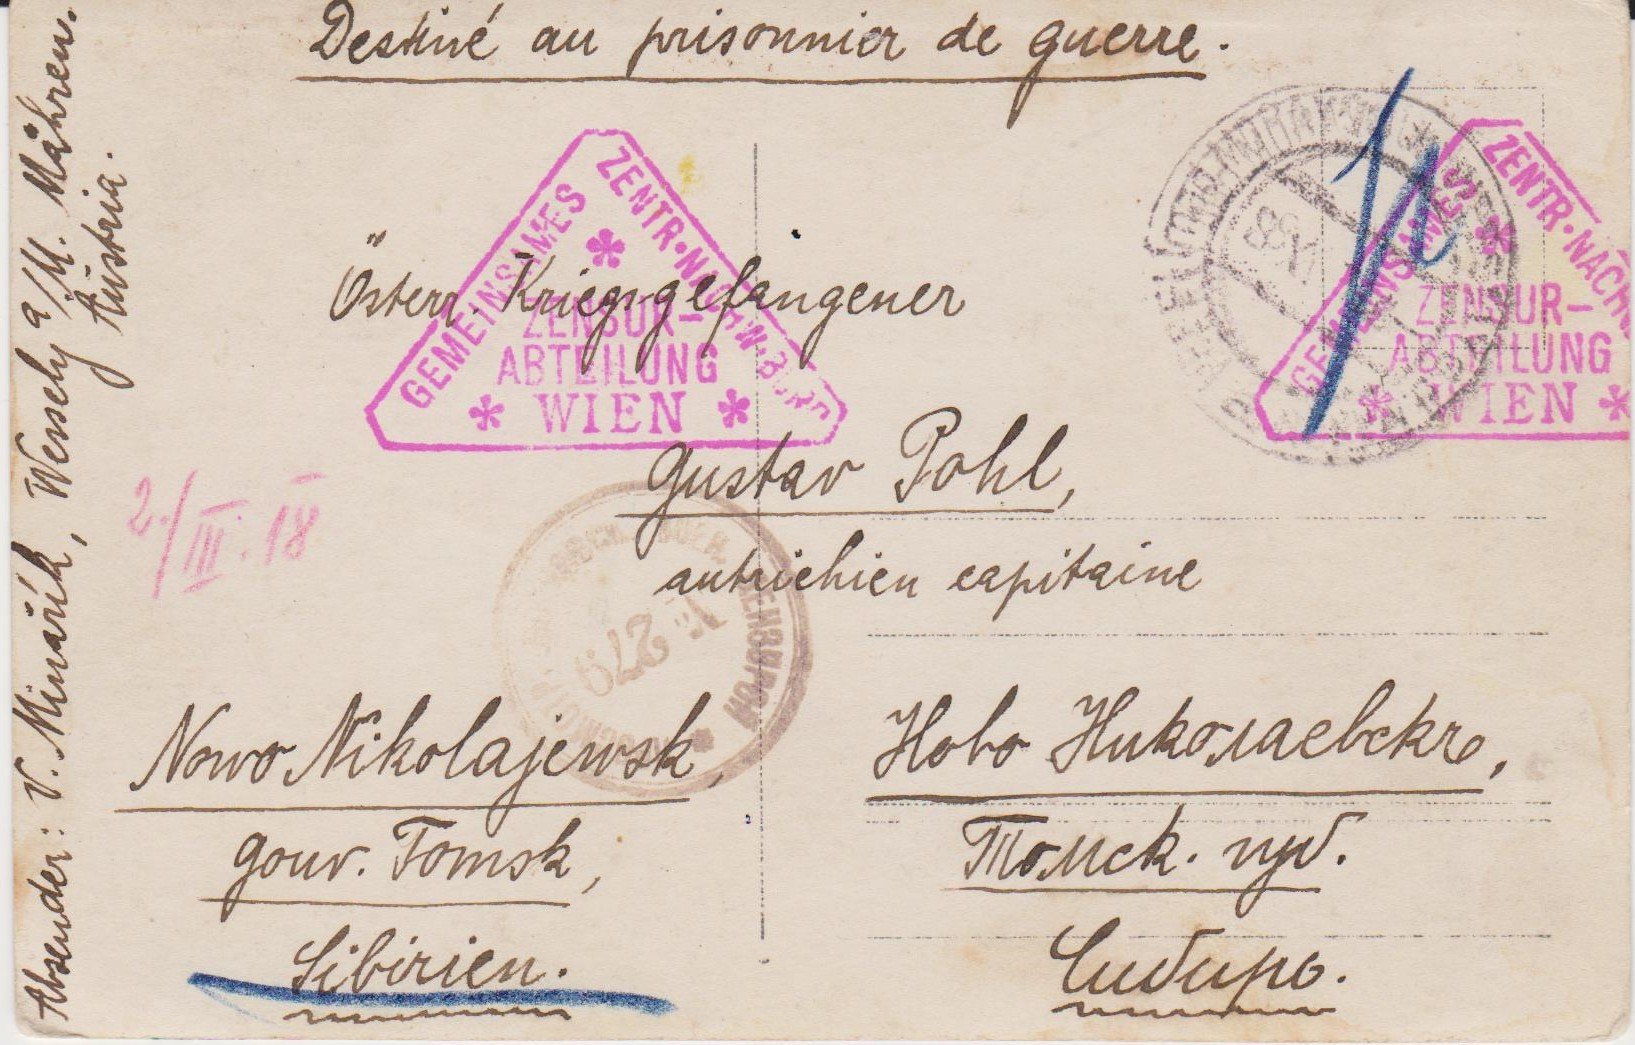 Destiné au prisonnier de guerre.
Österr. Kriegsgefangener
Gustav Pohl,
autrichien capitaine
Nowo Nikolajewsk,
gouv. Tomsk,
Sibirien.
Ново Николаевскъ,
Томск. губ.
Сибирь.
Absender: V. Minařík, Wessely a/M. Mähren.
Austria.
2./III.18
GEMEINSAMES
ZENTR·NACHW·BÜRO
ZENSUR-
ABTEILUNG
WIEN
GEMEINSAMES
ZENTR·NACHW
ZENSUR-
ABTEILUNG
WIEN
№ 279